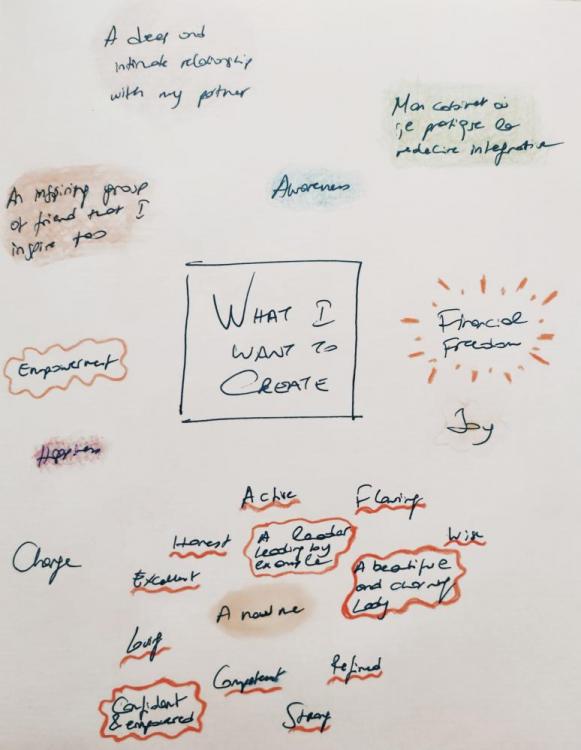 A deep and
intimate relationship
with my partner
Mon cabinet où
je pratique la
médecine integrative
Awareness
An inspiring group
of friend that I
inspire too
WHAT I
WANT TO
CREATE
Financial
Freedom
Empowerment
Joy
Happiness
Active
Flowing
Honest
A leader
leading by
example
Wise
Change
Excellent
A beautiful
and charming
Lady
A new me
Loving
Refined
Competent
Confident
& empowered
Strong